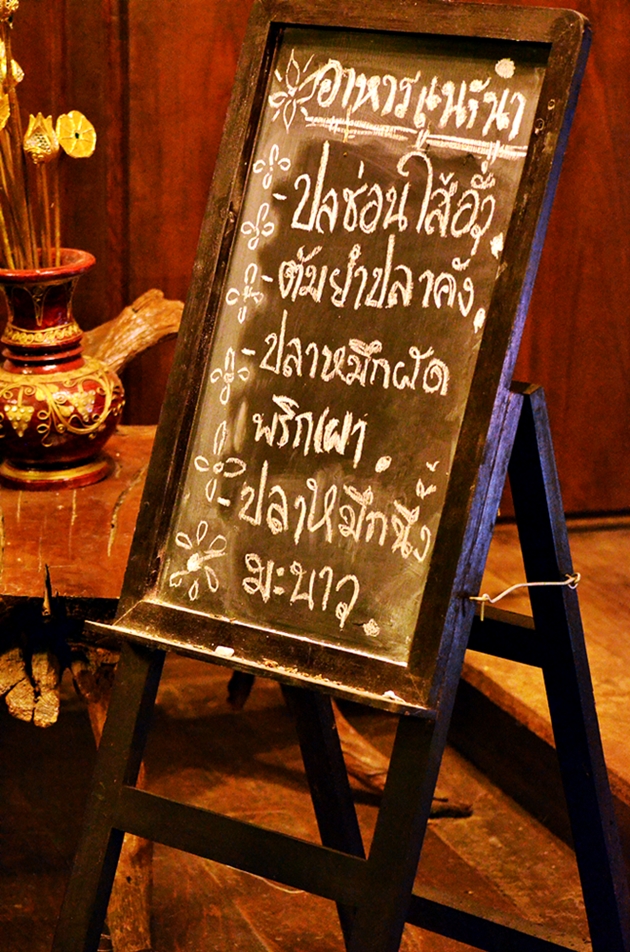 อาหารแนะนำ
- ปลช่อนไส้อั่ว
- ต้มยำปลาคัง
- ปลาหมึกผัด
พริกเผา
- ปลาหมึกนึ่ง
มะนาว